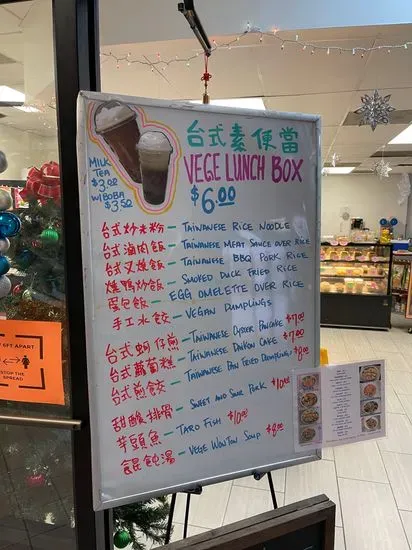 台式素便當
VEGE LUNCH BOX
$6.00
MILK
TEA
$3.00
W/BOBA
$3.50
台式炒米粉 — TAIWANESE RICE NOODLE
台式滷肉飯 — TAIWANESE MEAT SAUCE OVER RICE
台式叉燒飯 — TAIWANESE BBQ PORK RICE
燻鴨炒飯 — SMOKED DUCK FRIED RICE
蛋包飯 — EGG OMELETTE OVER RICE
手工水餃 — VEGAN DUMPLINGS
台式蚵仔煎 — TAIWANESE OYSTER PANCAKE $7.00
台式蘿蔔糕 — TAIWANESE DAIKON CAKE $7.00
台式煎餃 — TAIWANESE PAN FRIED DUMPLINGS $8.00
甜酸排骨 — SWEET AND SOUR PORK $10.00
芋頭魚 — TARO FISH $10.00
餛飩湯 — VEGE WONTON SOUP $8.00
6FT APART
STOP THE
SPREAD